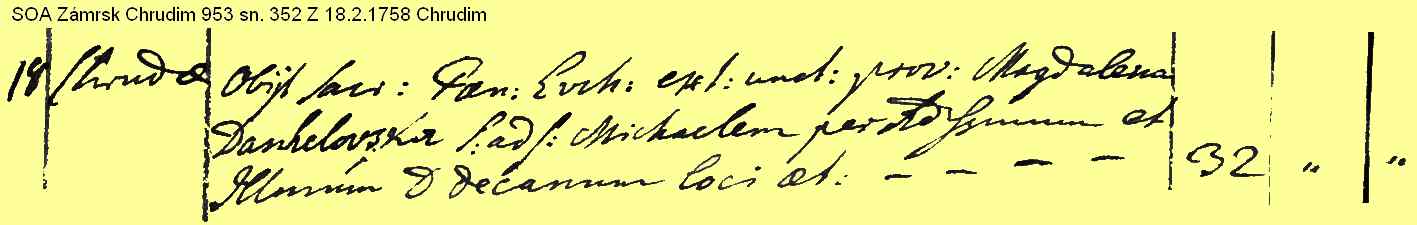 SOA Zámrsk Chrudim 953 sn. 352 Z 18.2.1758 Chrudim
18 Chrudæ Obijt sacr: Pæn: Evch: ext: unct: prov: Magdalena
Danhelovska S: ad S: Michaelem per Ad̃ssimum et
Illmum D Decanum loci æt: – – – – 32 " "